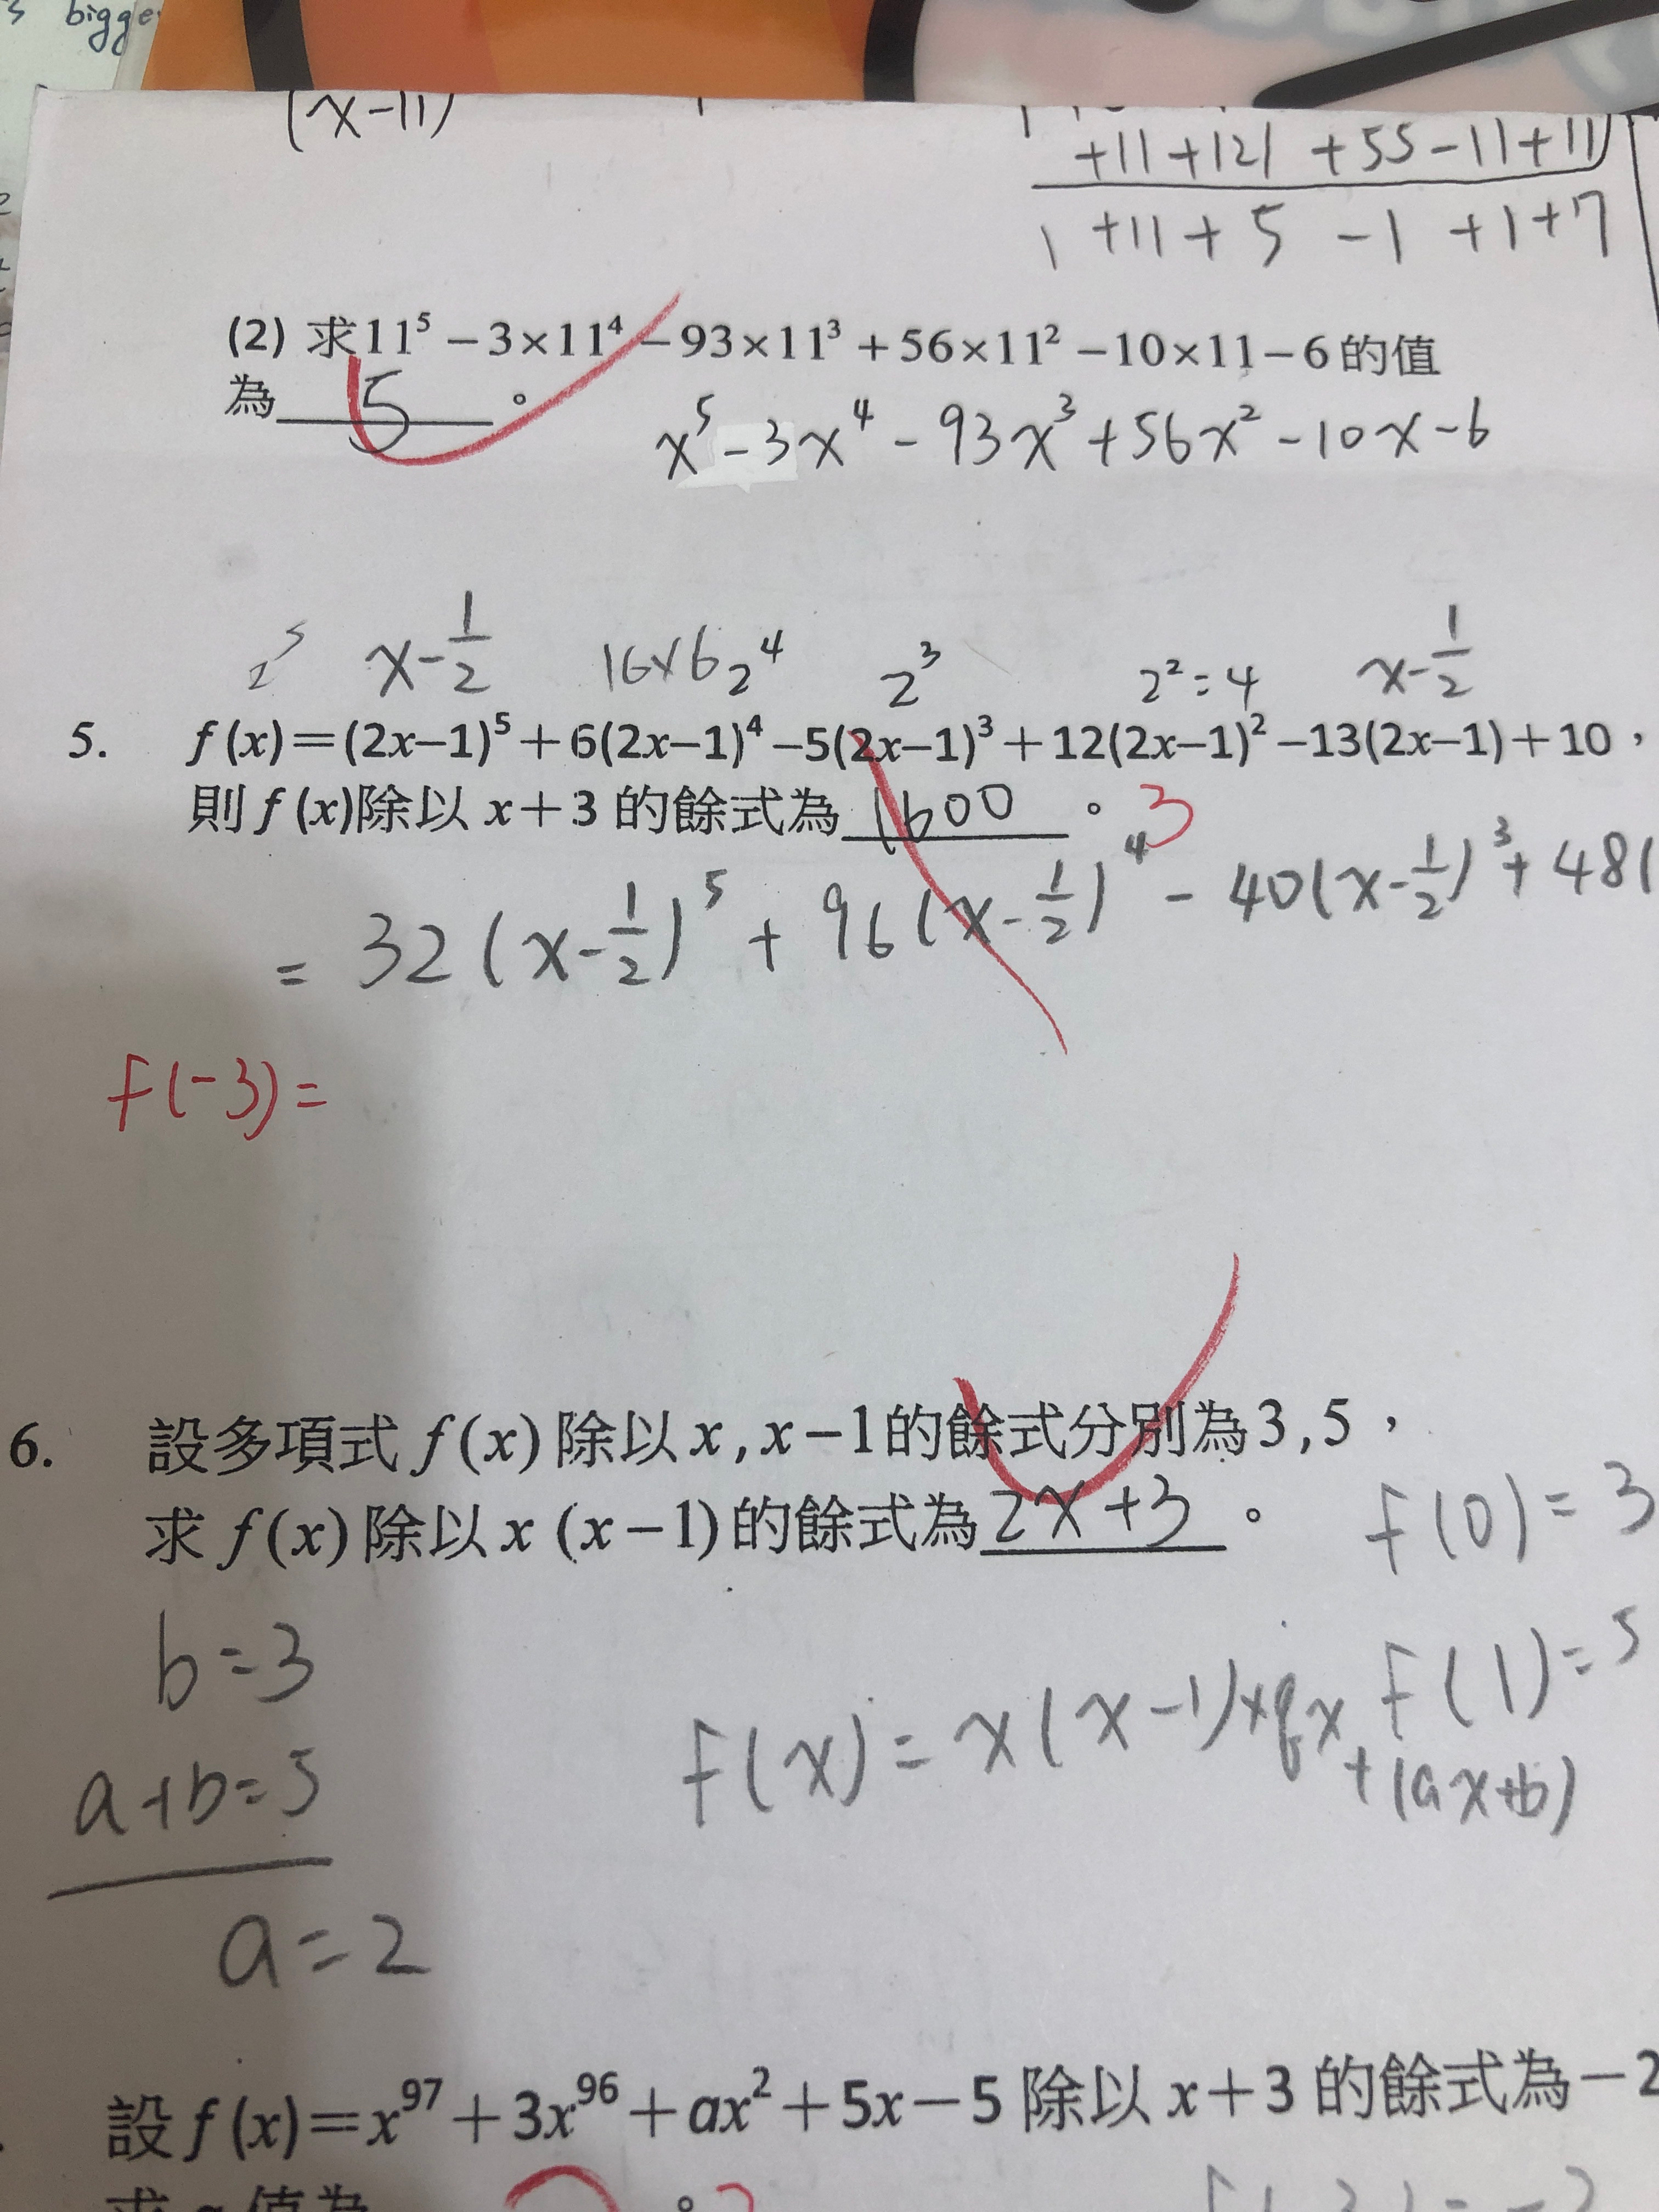 bigge
(x-11)
+11+121 +55-11+11
1 +11+5 -1 +1+7
(2) 求11⁵－3×11⁴－93×11³＋56×11²－10×11－6的值
為 5 。
x⁵-3x⁴-93x³+56x²-10x-6
2⁵ x-1/2 16×6 2⁴ 2³ 2²=4 x-1/2
5. f(x)＝(2x–1)⁵＋6(2x–1)⁴–5(2x–1)³＋12(2x–1)²–13(2x–1)＋10，
則f(x)除以 x＋3 的餘式為 1600 。 3
= 32(x-1/2)⁵ + 96(x-1/2)⁴ - 40(x-1/2)³+ 48(
f(-3)=
6. 設多項式 f(x) 除以 x, x－1的餘式分別為3,5，
求 f(x) 除以 x (x－1)的餘式為 2x+3 。
f(0)=3
b=3
f(1)=5
f(x)=x(x-1)×qx
+(ax+b)
a+b=5
a=2
設 f(x)＝x⁹⁷＋3x⁹⁶＋ax²＋5x－5 除以 x＋3 的餘式為－2
求 a 值為 。